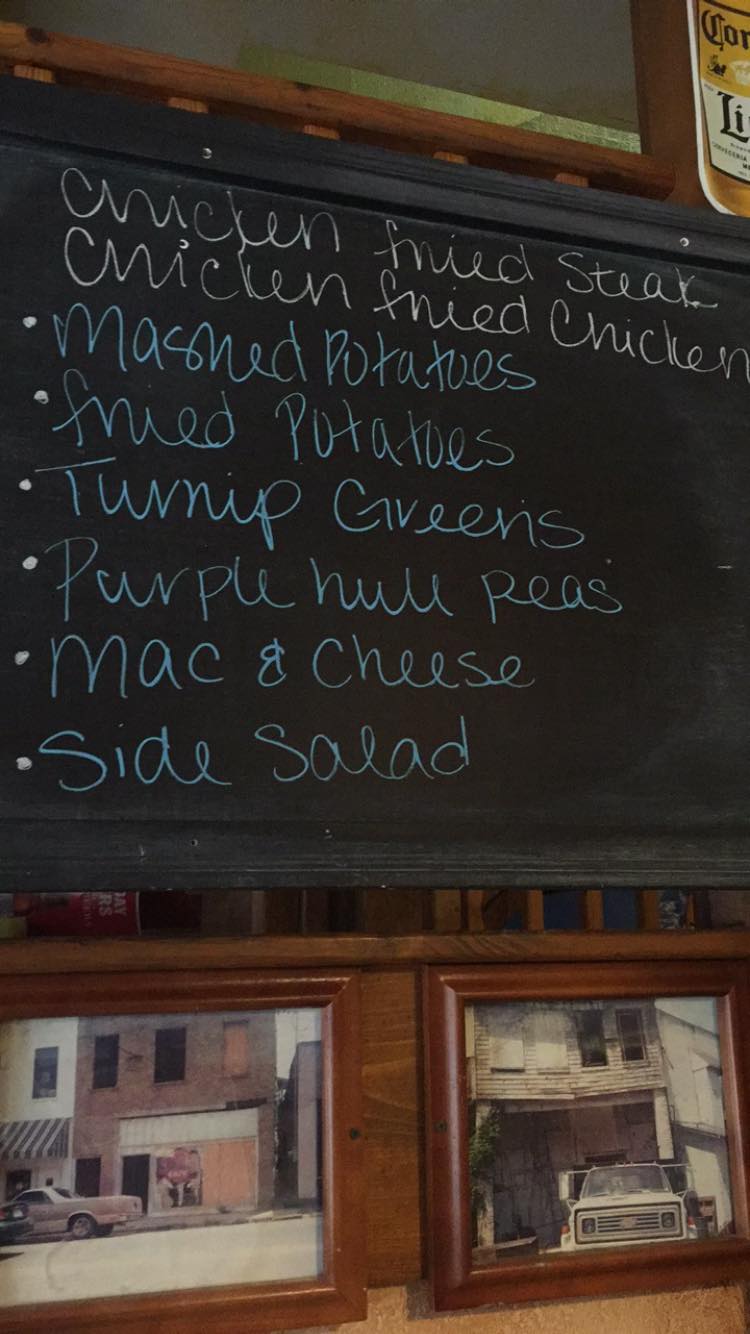 Chicken fried Steak
Chicken fried Chicken
• Mashed Potatoes
• fried Potatoes
• Turnip Greens
• Purple hull peas
• Mac & Cheese
• Side Salad